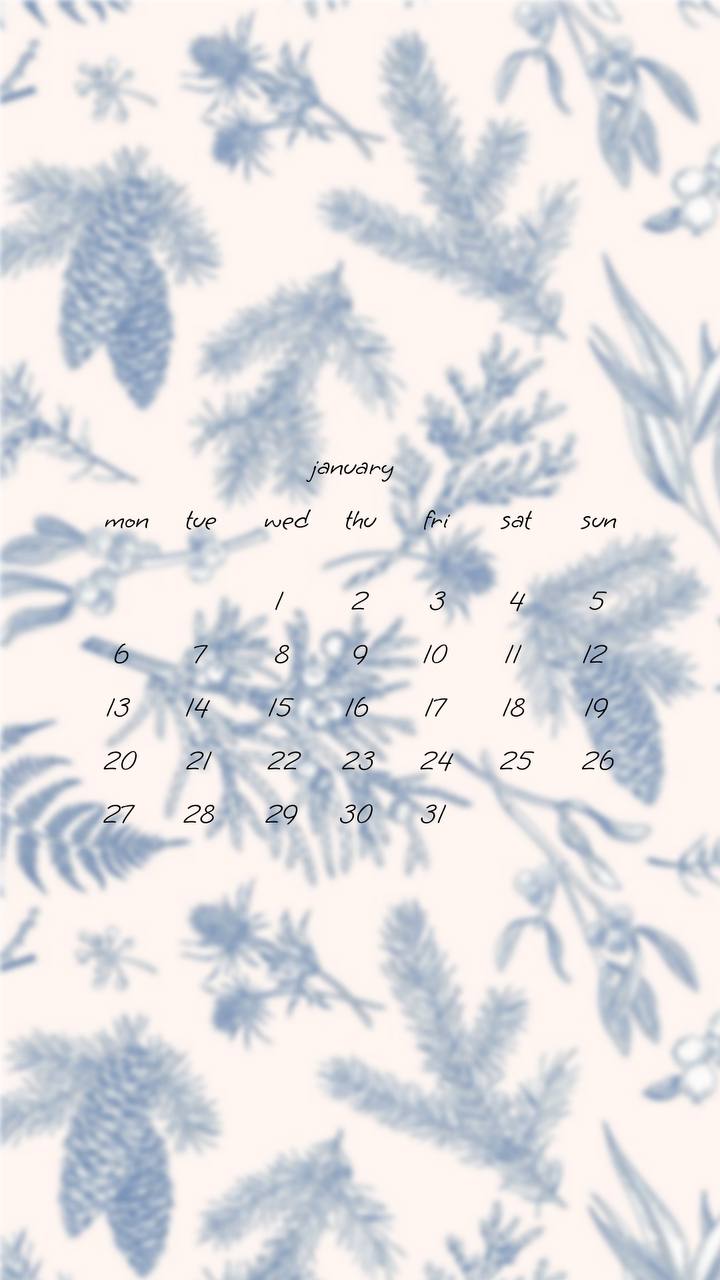 january
mon tue wed thu fri sat sun
1 2 3 4 5
6 7 8 9 10 11 12
13 14 15 16 17 18 19
20 21 22 23 24 25 26
27 28 29 30 31